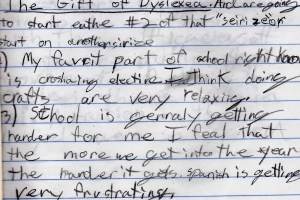 The Gift of Dyslexea. And are going
to start eathe #2 of that "seirizeor
start on anothersirize
1) My favrit part of school right know
is croshaing elective I think doing
crafts are very relaxiing.
3) School is genraly getting
harder for me I feel that
the more we get into the year
the harder it gets. spanish is getting
very frustrating.